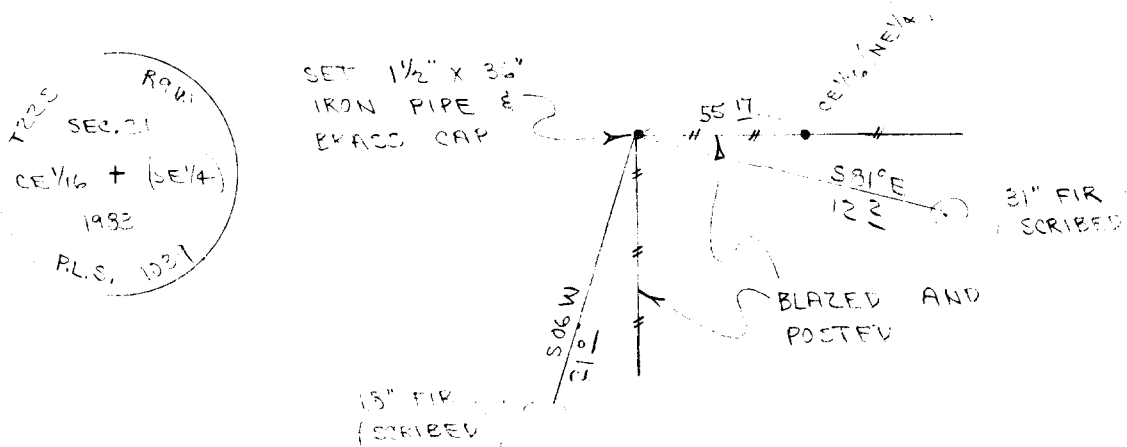 T22S
R9W
SEC. 21
CE 1/16 + (SE 1/4)
1983
P.L.S. 1031
SET 1½" X 36"
IRON PIPE &
BRASS CAP
55 17
CE 1/16 (NE 1/4)
S81°E
12 2
31" FIR
SCRIBED
BLAZED AND
POSTED
S06 W
FIR
SCRIBED